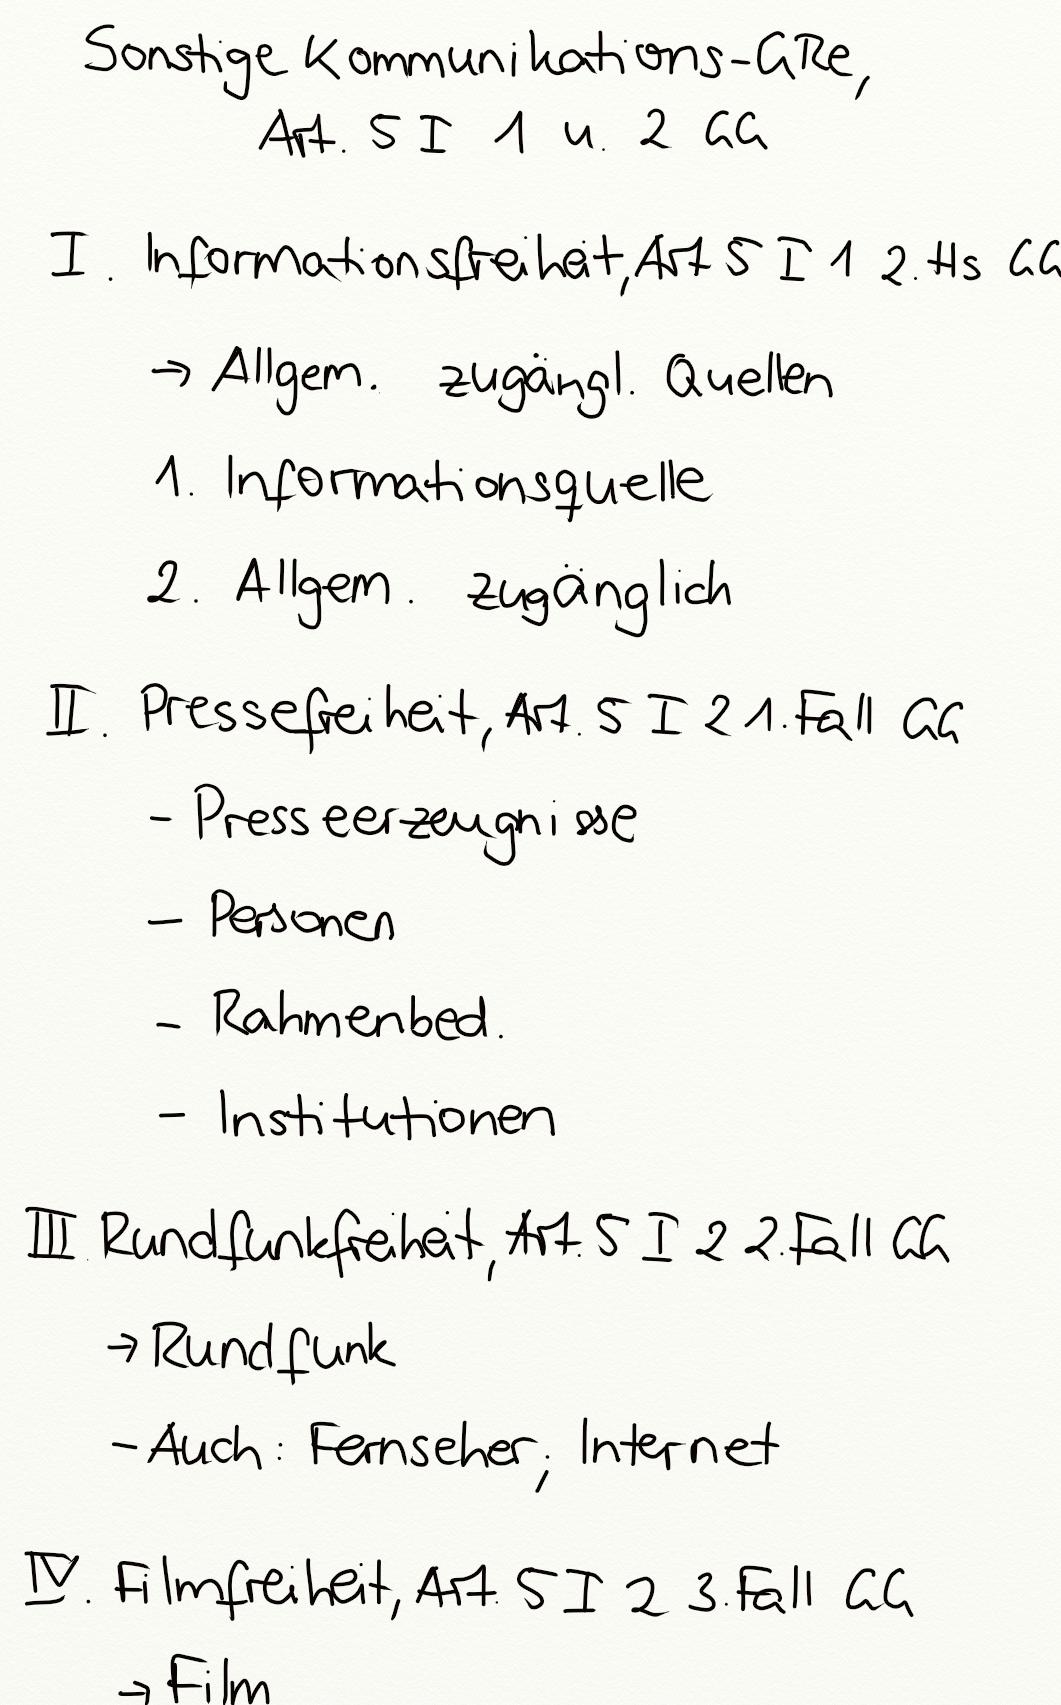 Sonstige Kommunikations-GRe,
Art. 5 I 1 u. 2 GG
I. Informationsfreiheit, Art 5 I 1 2. Hs GG
→ Allgem. zugängl. Quellen
1. Informationsquelle
2. Allgem. zugänglich
II. Pressefreiheit, Art. 5 I 2 1. Fall GG
- Presseerzeugnisse
- Personen
- Rahmenbed.
- Institutionen
III. Rundfunkfreiheit, Art. 5 I 2 2. Fall GG
→ Rundfunk
- Auch: Fernseher; Internet
IV. Filmfreiheit, Art. 5 I 2 3. Fall GG
→ Film